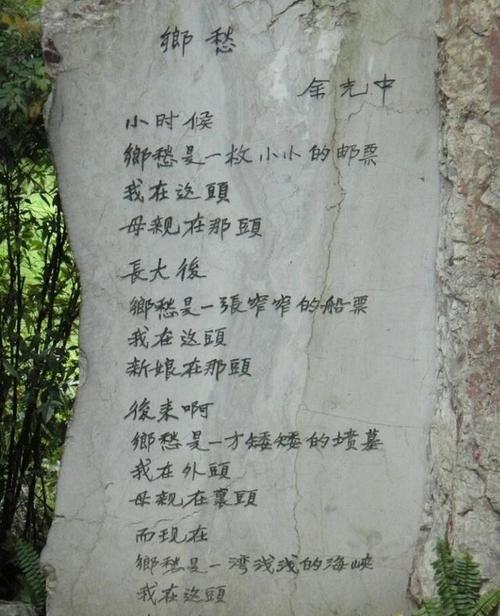 鄉愁
余光中
小时候
鄉愁是一枚小小的邮票
我在这頭
母亲在那頭
長大後
鄉愁是一張窄窄的船票
我在这頭
新娘在那頭
後来啊
鄉愁是一方矮矮的墳墓
我在外頭
母亲在裏頭
而现在
鄉愁是一湾浅浅的海峡
我在这頭